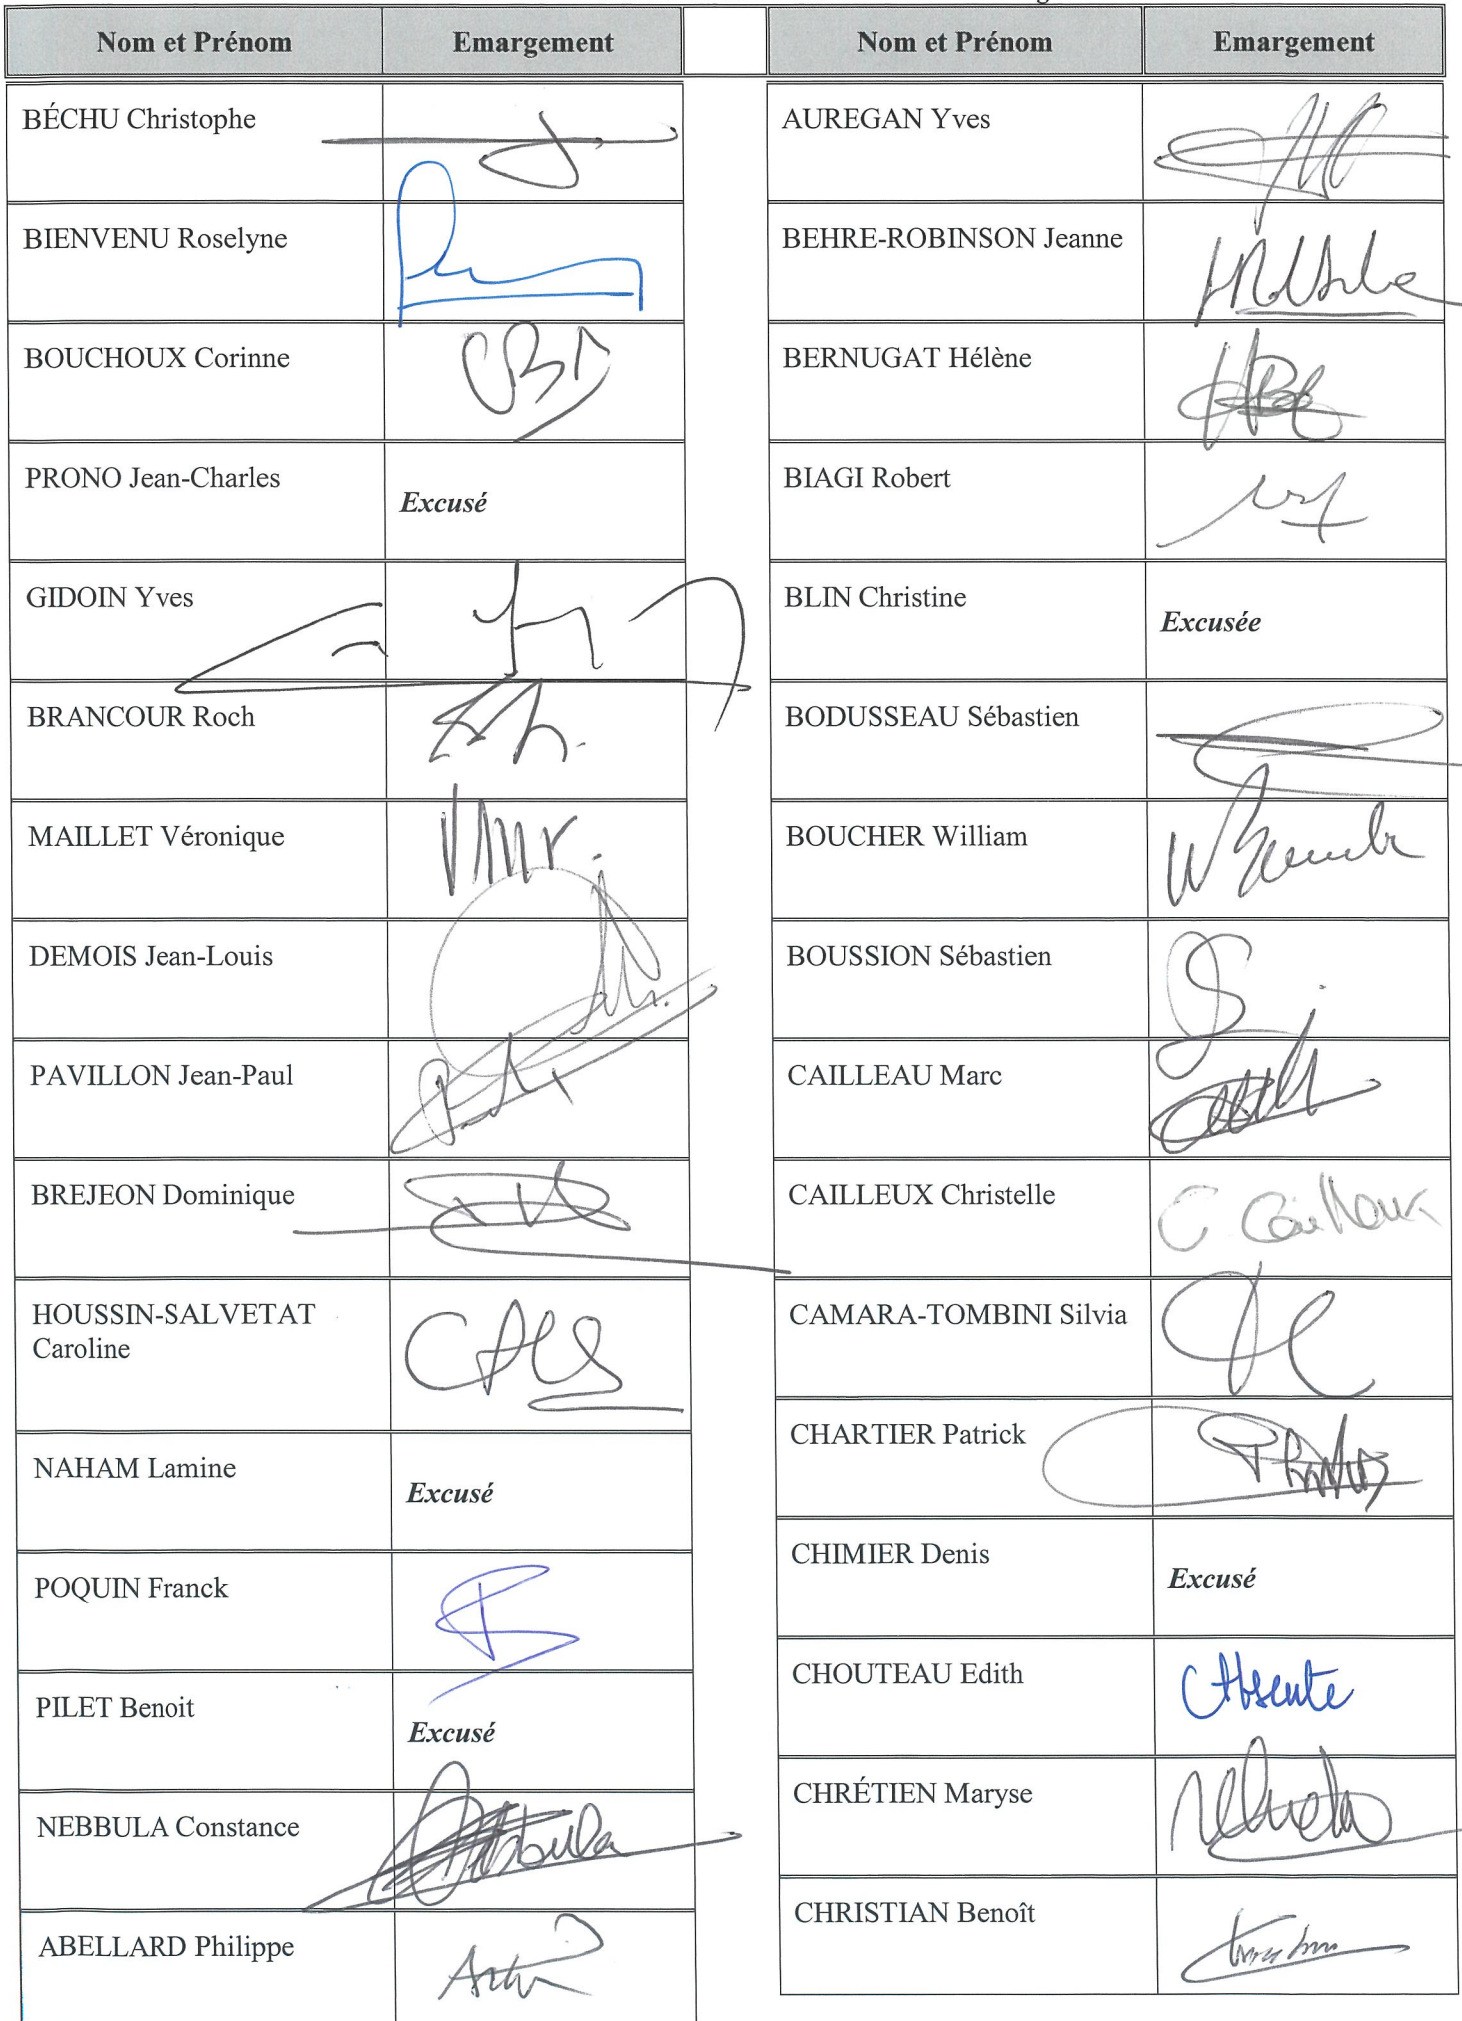 Nom et Prénom Emargement
BÉCHU Christophe
BIENVENU Roselyne
BOUCHOUX Corinne
PRONO Jean-Charles
Excusé
GIDOIN Yves
BRANCOUR Roch
MAILLET Véronique
DEMOIS Jean-Louis
PAVILLON Jean-Paul
BREJEON Dominique
HOUSSIN-SALVETAT
Caroline
NAHAM Lamine
Excusé
POQUIN Franck
PILET Benoit
Excusé
NEBBULA Constance
ABELLARD Philippe
Nom et Prénom Emargement
AUREGAN Yves
BEHRE-ROBINSON Jeanne
BERNUGAT Hélène
BIAGI Robert
BLIN Christine
Excusée
BODUSSEAU Sébastien
BOUCHER William
BOUSSION Sébastien
CAILLEAU Marc
CAILLEUX Christelle
C Cailleux
CAMARA-TOMBINI Silvia
CHARTIER Patrick
CHIMIER Denis
Excusé
CHOUTEAU Edith
Absente
CHRÉTIEN Maryse
CHRISTIAN Benoît